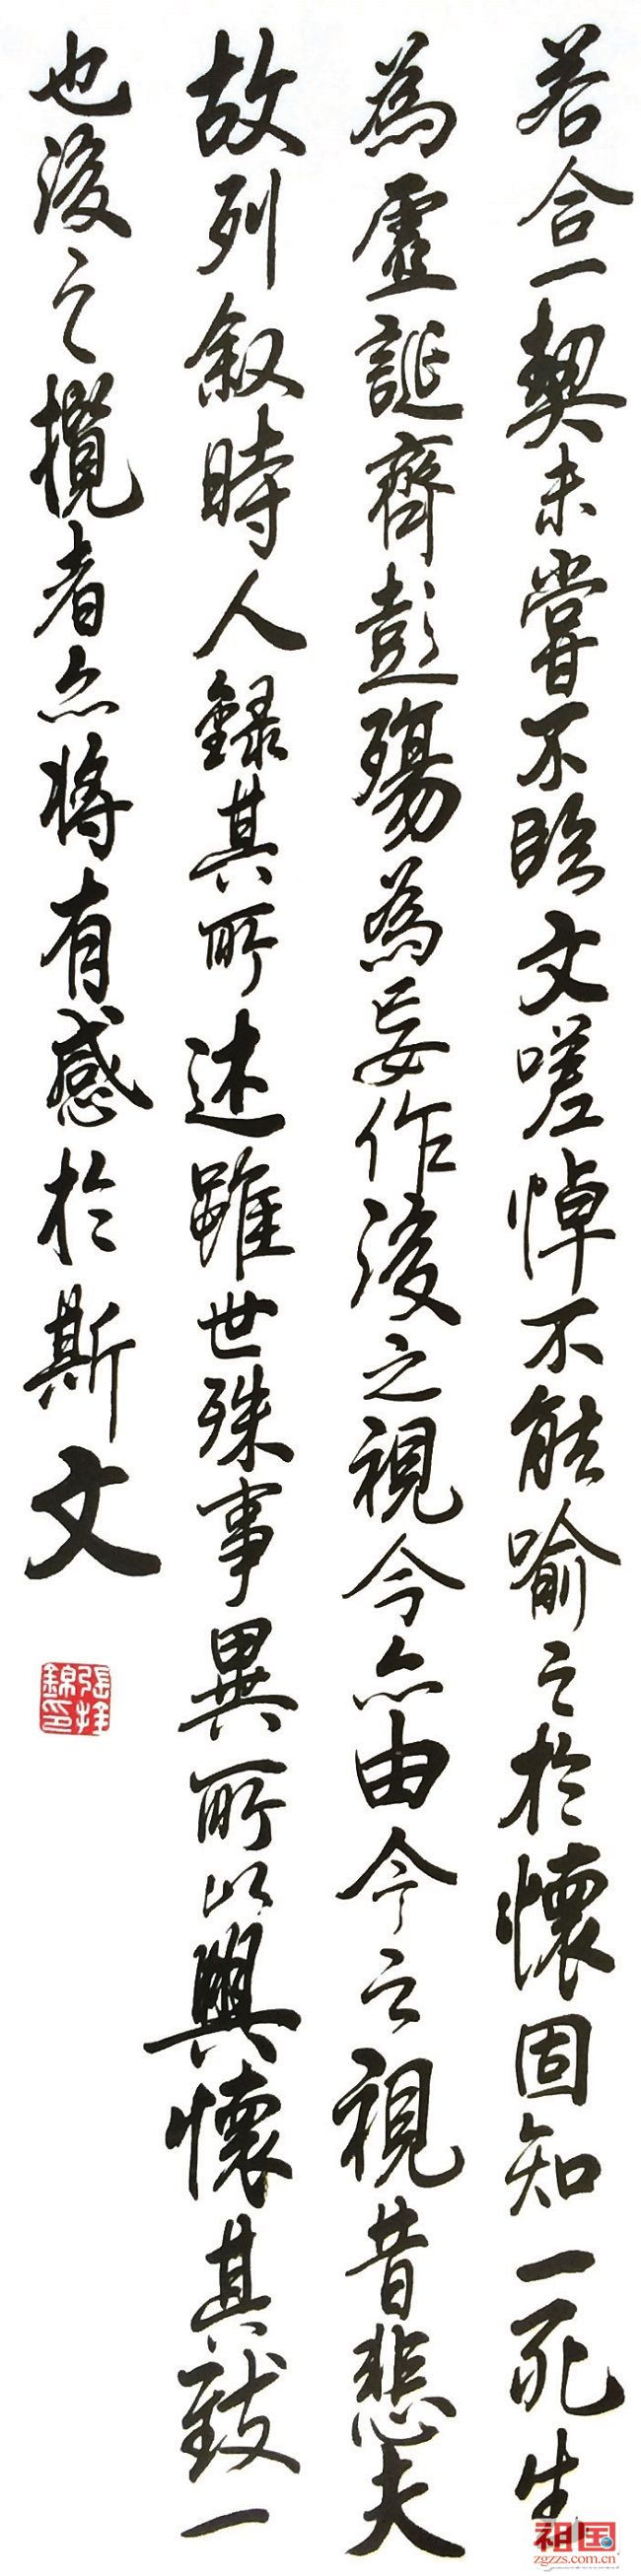 若合一契未嘗不臨文嗟悼不能喻之於懷固知一死生
為虛誕齊彭殤為妄作後之視今亦由今之視昔悲夫
故列敘時人錄其所述雖世殊事異所以興懷其致一
也後之攬者亦將有感於斯文
祖国
zgzzs.com.cn